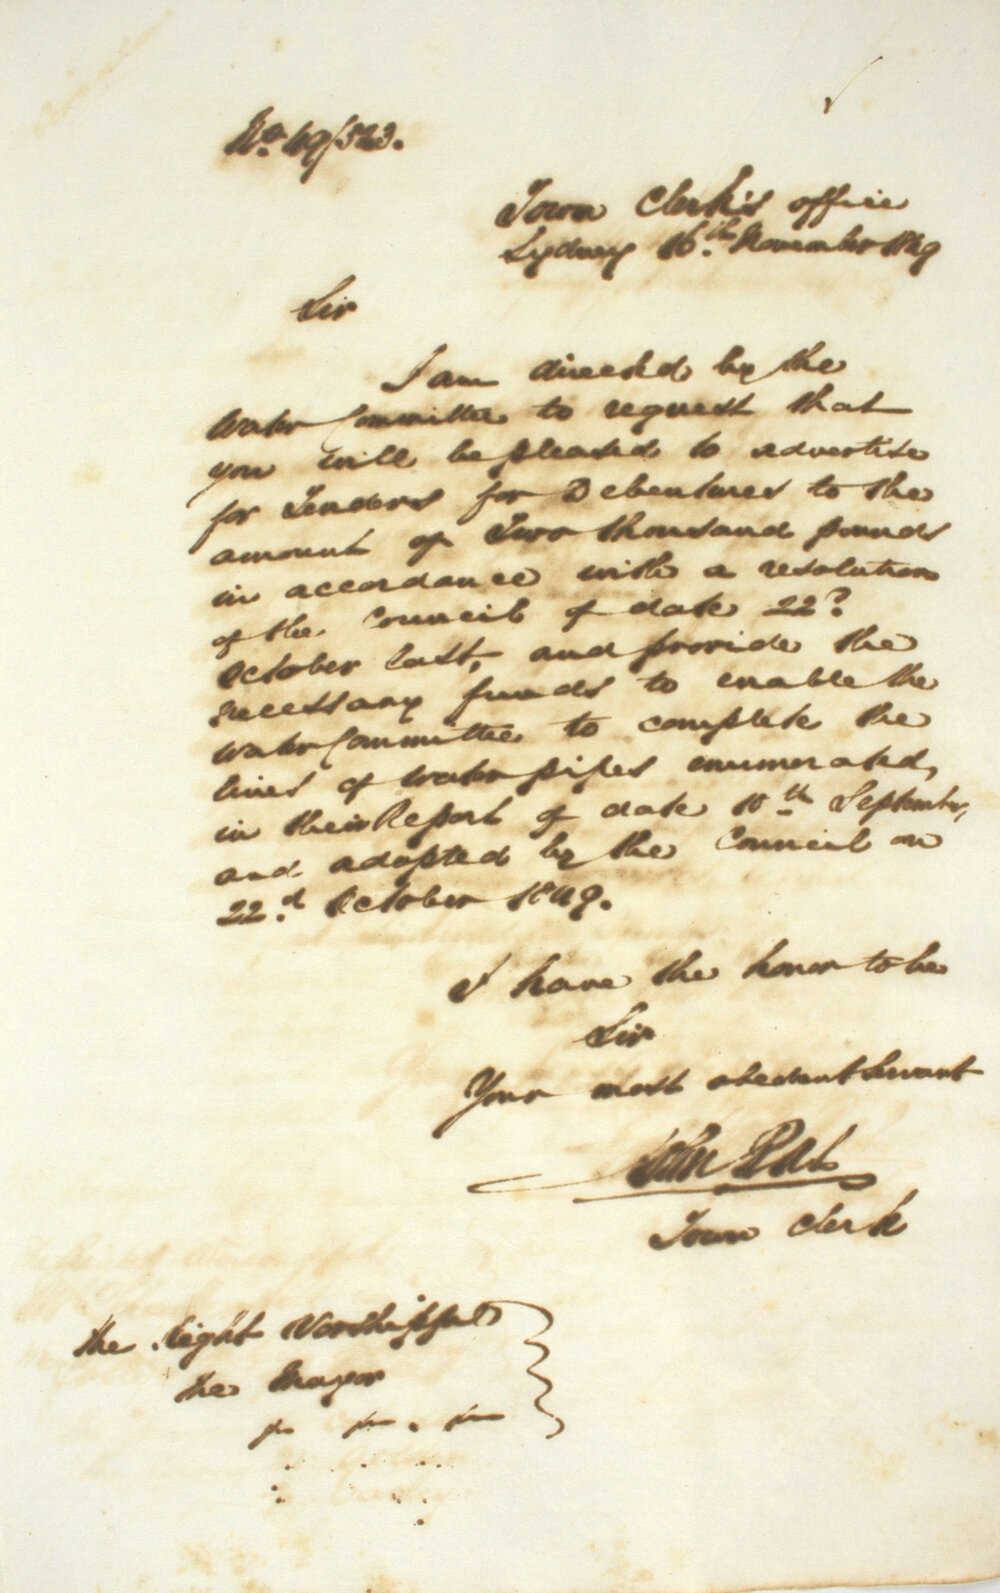 No. 49/323.
Town Clerk's office
Sydney 16th November 1849
Sir
I am directed by the
Water Committee to request that
you will be pleased to advertise
for Tenders for Debentures to the
amount of Two thousand pounds
in accordance with a resolution
of the Council of date 22d
October last, and provide the
necessary funds to enable the
Water Committee to complete the
lines of water pipes enumerated,
in their Report of date 10th September,
and adopted by the Council on
22d October 1849.
I have the honor to be
Sir
Your most obedient Servant
John Rae
Town Clerk
The Right Worshipful
The Mayor